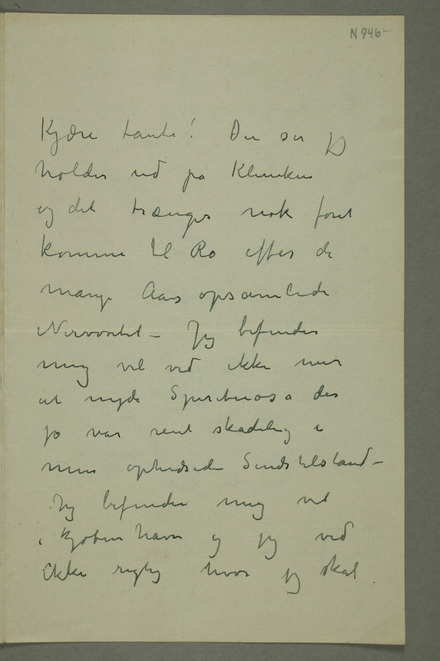 N 946
Kjære tante! Du ser jeg
holder ud på Kliniken
og det trænges nok forat
komme til Ro efter de
mange Aars opsamlede
Nervøsitet – Jeg befinder
mig vel ved ikke mer
at nyde Spirituosa der
jo var rent skadelig i
min ophidsede Sindstilstand –
Jeg befinder mig vel
i Kjøbenhavn og jeg ved
ikke rigtig hvor jeg skal